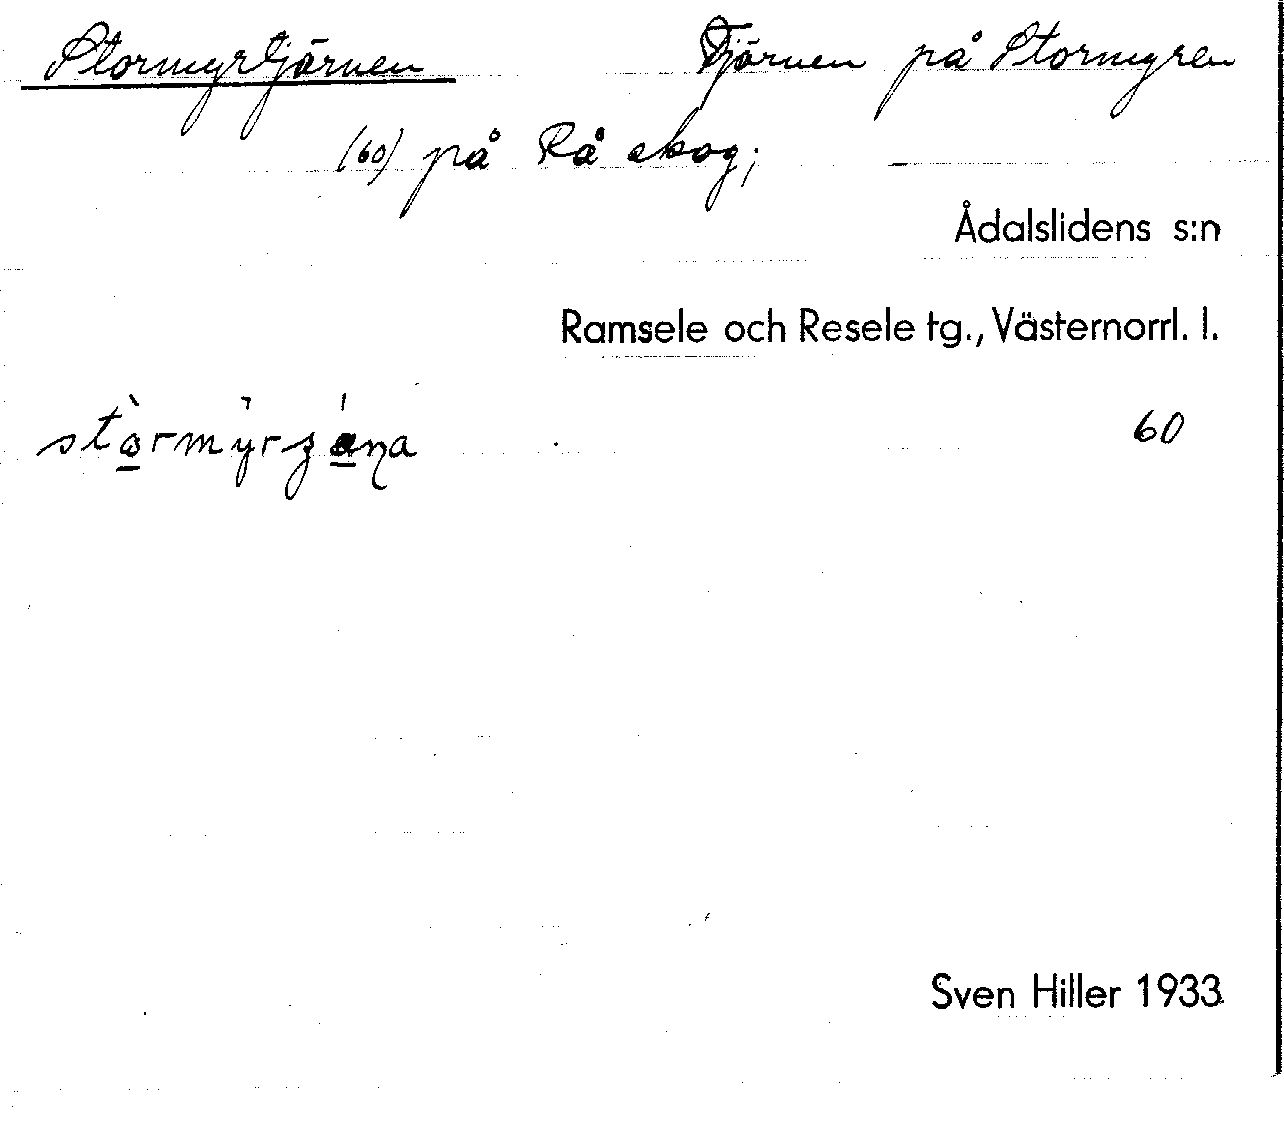 Stormyrtjärnen Tjärnen på Stormyren
(60) på Rå skog;
Ådalslidens s:n
Ramsele och Resele tg., Västernorrl. l.
60
Sven Hiller 1933